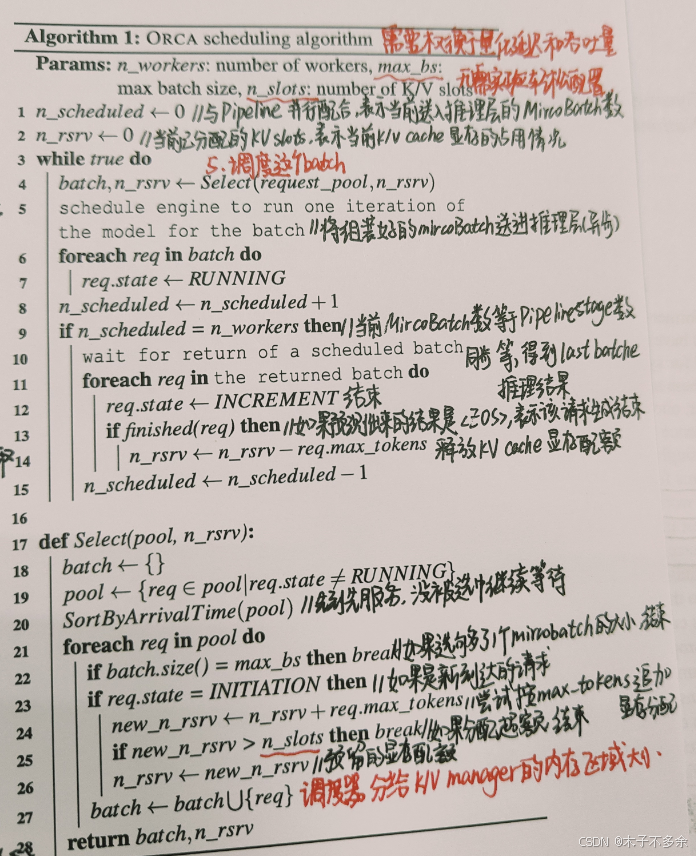 Algorithm 1: ORCA scheduling algorithm 需要权衡于量化延迟和吞吐量
Params: n_workers: number of workers, max_bs:
max batch size, n_slots: number of K/V slots
1 n_scheduled ← 0 //与Pipeline并行配合,表示当前送入推理层的MircoBatch数
2 n_rsrv ← 0 //当前已分配的KV slots,表示当前K/V cache显存的占用情况
3 while true do 5.调度这个batch
4 batch,n_rsrv ← Select(request_pool,n_rsrv)
5 schedule engine to run one iteration of
the model for the batch //将组装好的mircoBatch送进推理层(异步)
6 foreach req in batch do
7 req.state ← RUNNING
8 n_scheduled ← n_scheduled + 1
9 if n_scheduled = n_workers then //当前MircoBatch数等于Pipelinestage数
10 wait for return of a scheduled batch 同步等,得到last batche
推理结果
11 foreach req in the returned batch do
12 req.state ← INCREMENT 结束
13 if finished(req) then //如果预测出来的结果是<EOS>,表示该请求生成结束
14 n_rsrv ← n_rsrv − req.max_tokens 释放KV cache显存配额
15 n_scheduled ← n_scheduled − 1
16
17 def Select(pool, n_rsrv):
18 batch ← {}
19 pool ← {req ∈ pool|req.state ≠ RUNNING}
20 SortByArrivalTime(pool) //先到先服务,没被选中继续等待
21 foreach req in pool do
22 if batch.size() = max_bs then break //如果选向多了1个mircobatch的大小 结束
23 if req.state = INITIATION then //如果是新到达的请求
24 new_n_rsrv ← n_rsrv + req.max_tokens //尝试按max_tokens追加
显存分配
25 if new_n_rsrv > n_slots then break //如果分配超 结束
26 n_rsrv ← new_n_rsrv //预留的显存配额
27 batch ← batch⋃{req} 调度器分给K/V manager的内存区域大小.
28 return batch,n_rsrv
CSDN @木子不多余